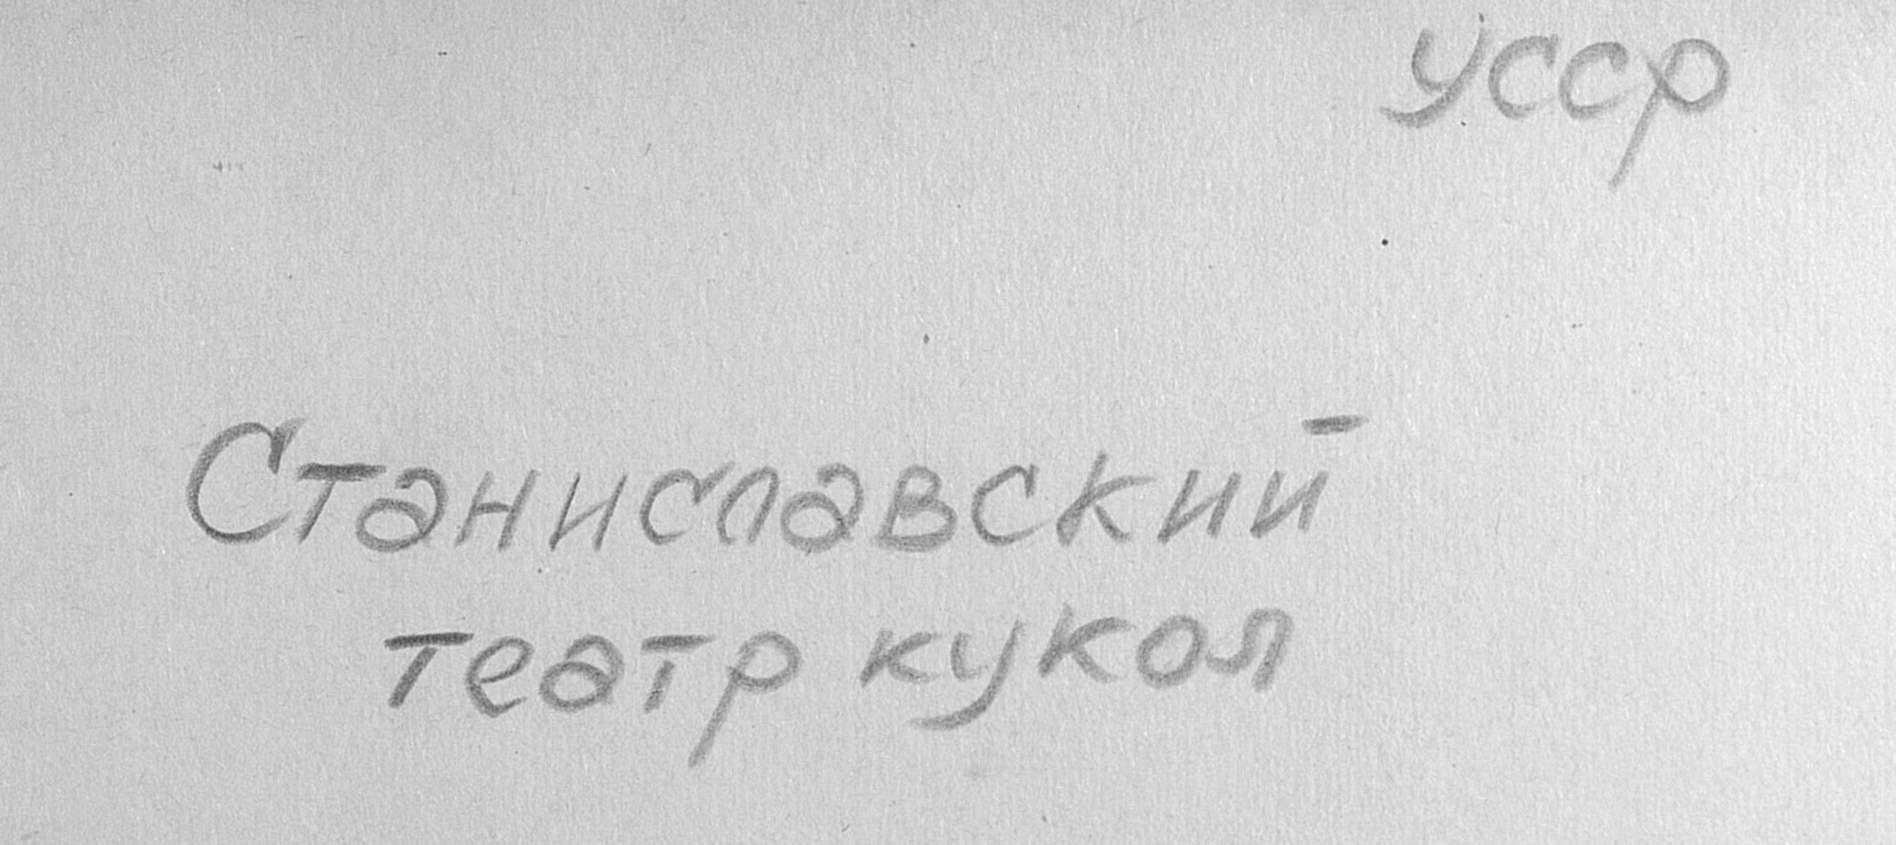 УССР
Станиславский
театр кукол